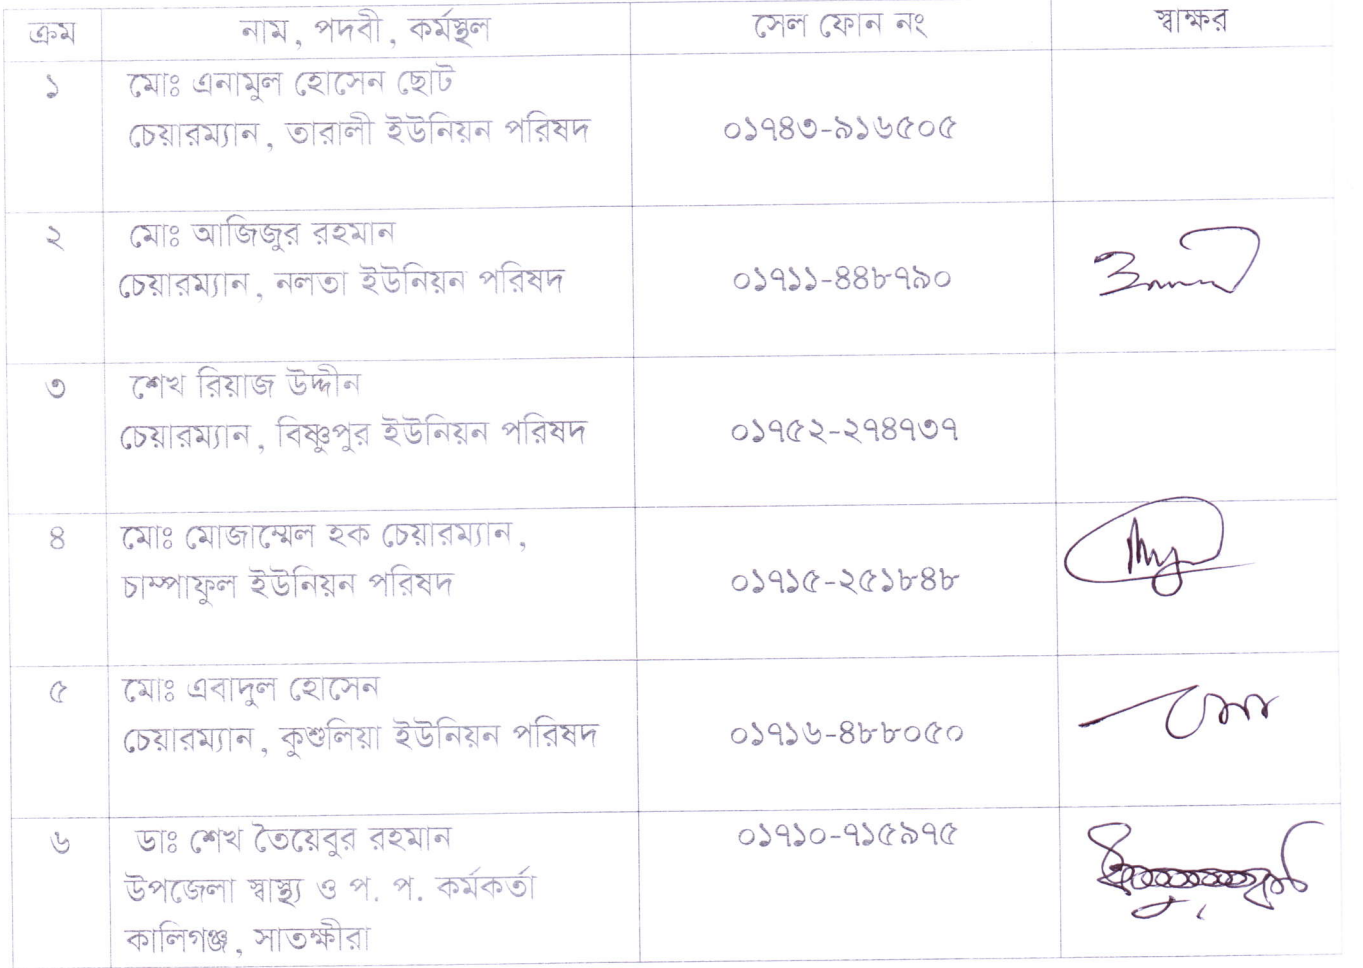 ক্রম নাম, পদবী, কর্মস্থল সেল ফোন নং স্বাক্ষর
১ মোঃ এনামুল হোসেন ছোট
চেয়ারম্যান, তারালী ইউনিয়ন পরিষদ ০১৭৪৩-৯১৬৫০৫
২ মোঃ আজিজুর রহমান
চেয়ারম্যান, নলতা ইউনিয়ন পরিষদ ০১৭১১-৪৪৮৭৯০
৩ শেখ রিয়াজ উদ্দীন
চেয়ারম্যান, বিষ্ণুপুর ইউনিয়ন পরিষদ ০১৭৫২-২৭৪৭৩৭
৪ মোঃ মোজাম্মেল হক চেয়ারম্যান,
চাম্পাফুল ইউনিয়ন পরিষদ ০১৭১৫-২৫১৮৪৮
৫ মোঃ এবাদুল হোসেন
চেয়ারম্যান, কুশুলিয়া ইউনিয়ন পরিষদ ০১৭১৬-৪৮৮০৫০
৬ ডাঃ শেখ তৈয়েবুর রহমান ০১৭১০-৭১৫৯৭৫
উপজেলা স্বাস্থ্য ও প. প. কর্মকর্তা
কালিগঞ্জ, সাতক্ষীরা